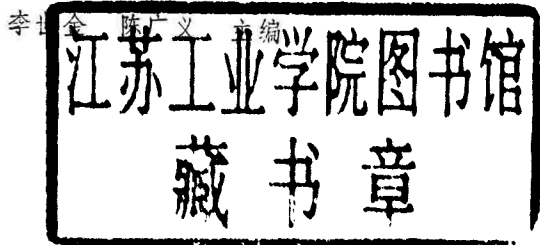 李世金 陈广义 主编
江苏工业学院图书馆
藏书章